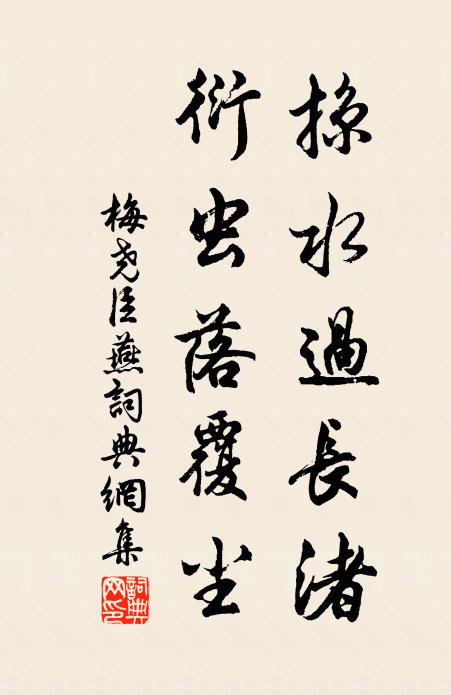 掠水過長渚
衍虫落覆尘
梅尧臣燕詞典網集
詞典
网印